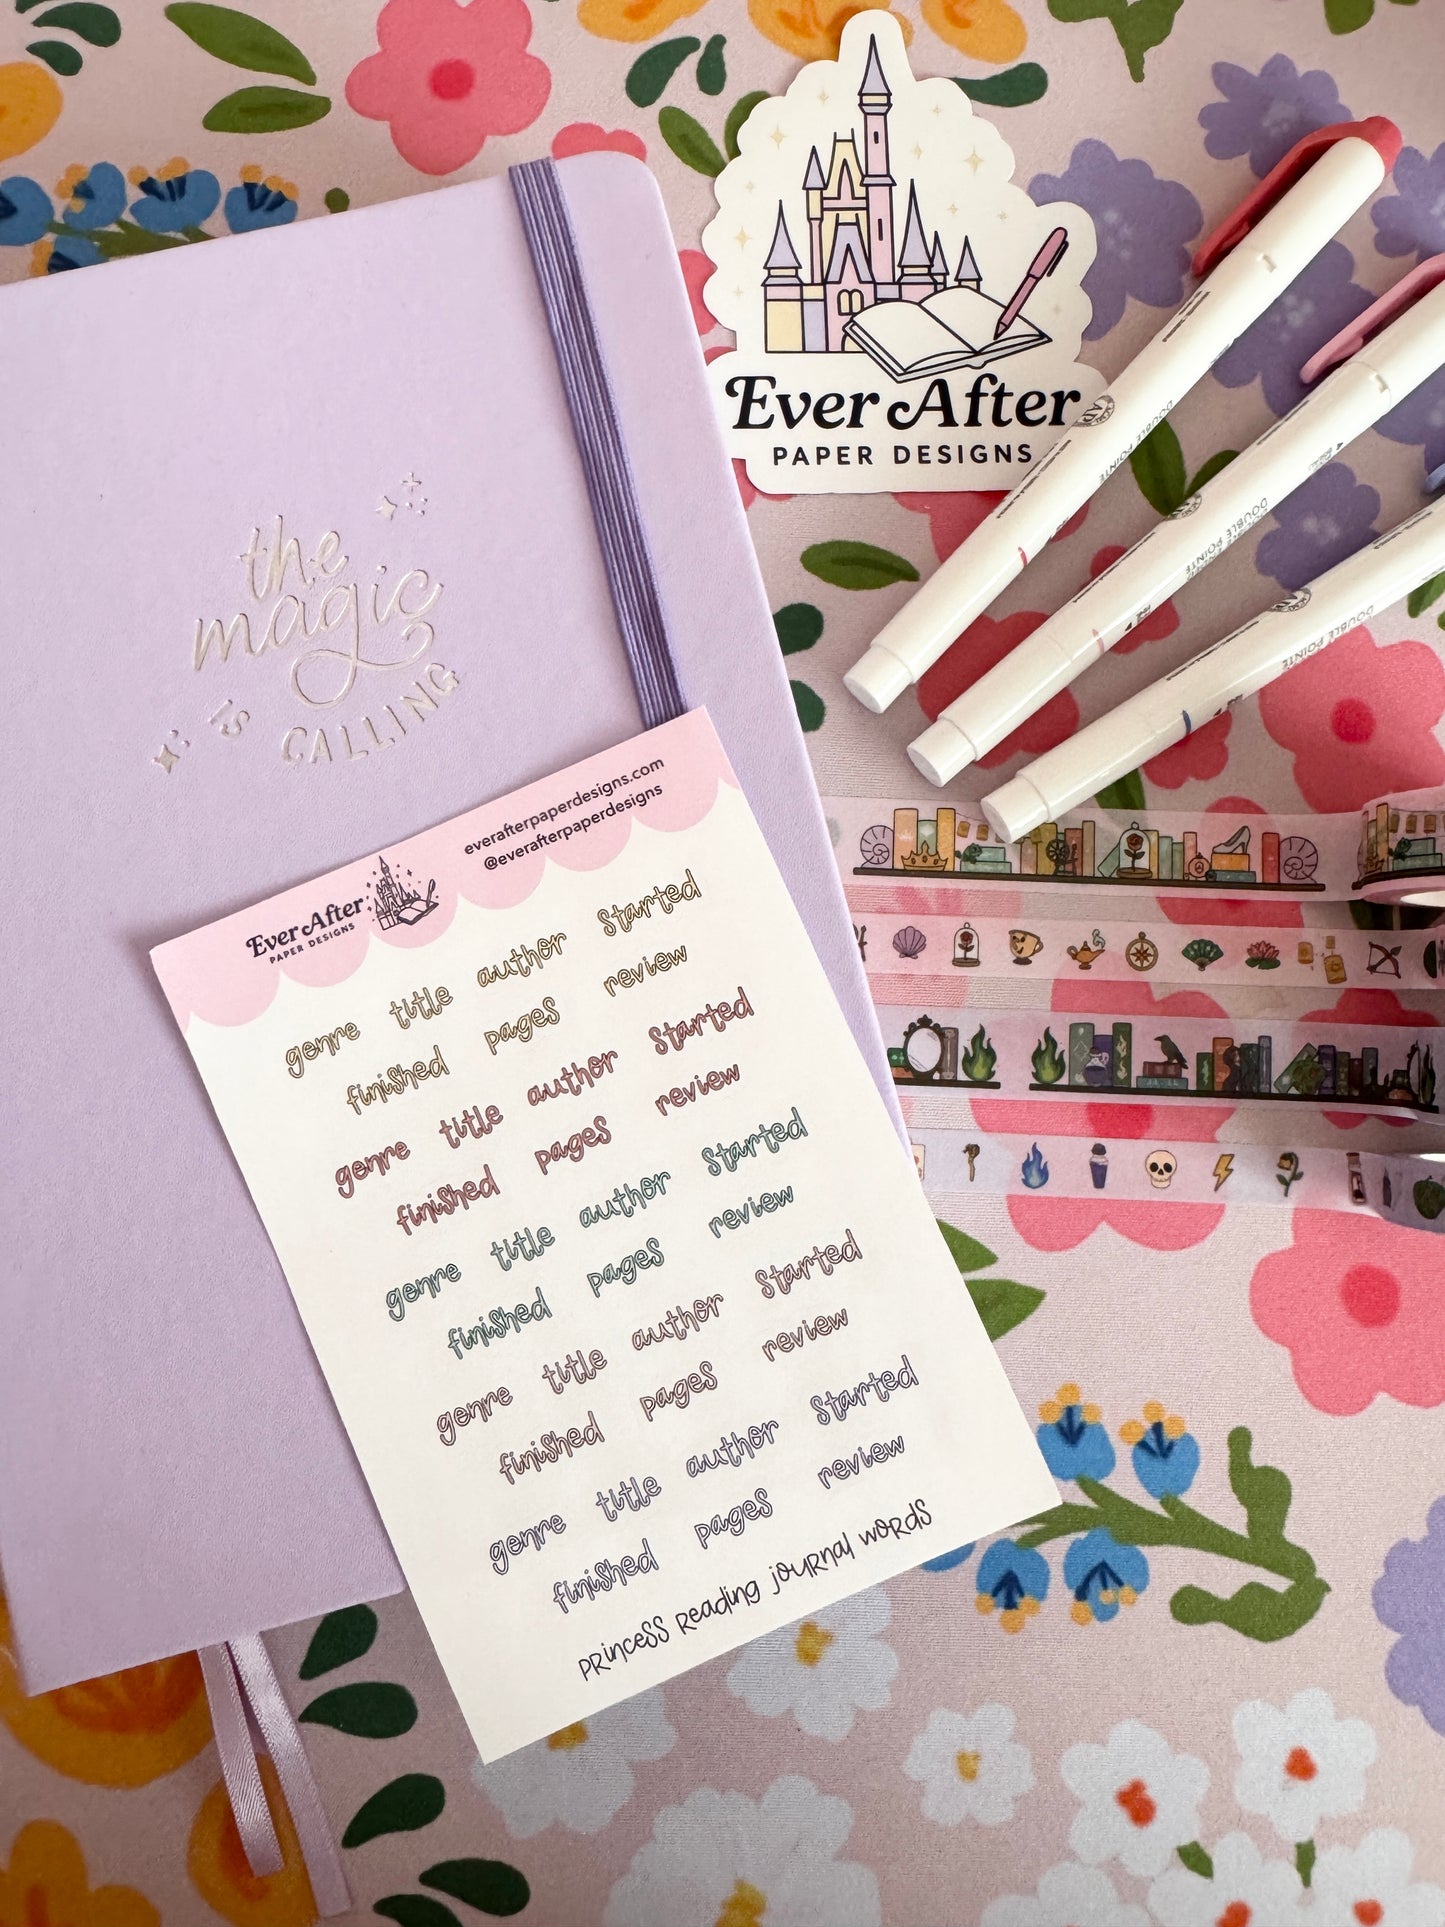 the
magic
is
CALLING
Ever After
PAPER DESIGNS
DOUBLE POINTE
DOUBLE POINTE
DOUBLE POINTE
everafterpaperdesigns.com
@everafterpaperdesigns
Ever After
PAPER DESIGNS
genre title author started
finished pages review
genre title author started
finished pages review
genre title author started
finished pages review
genre title author started
finished pages review
genre title author started
finished pages review
PRincess Reading JouRnal woRds